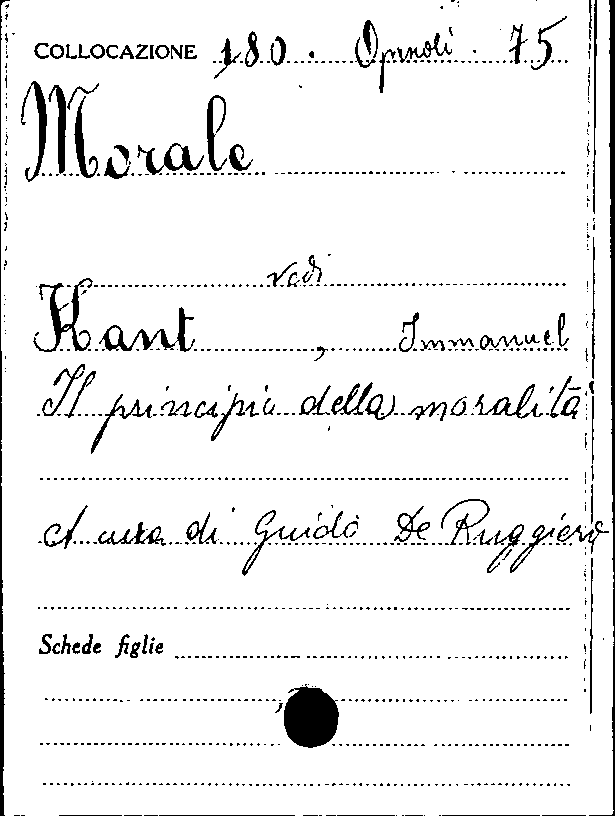 COLLOCAZIONE 180. Opuscoli. 75
Morale
vedi
Kant, Immanuel
Il principio della moralità
A cura di Guido De Ruggiero
Schede figlie